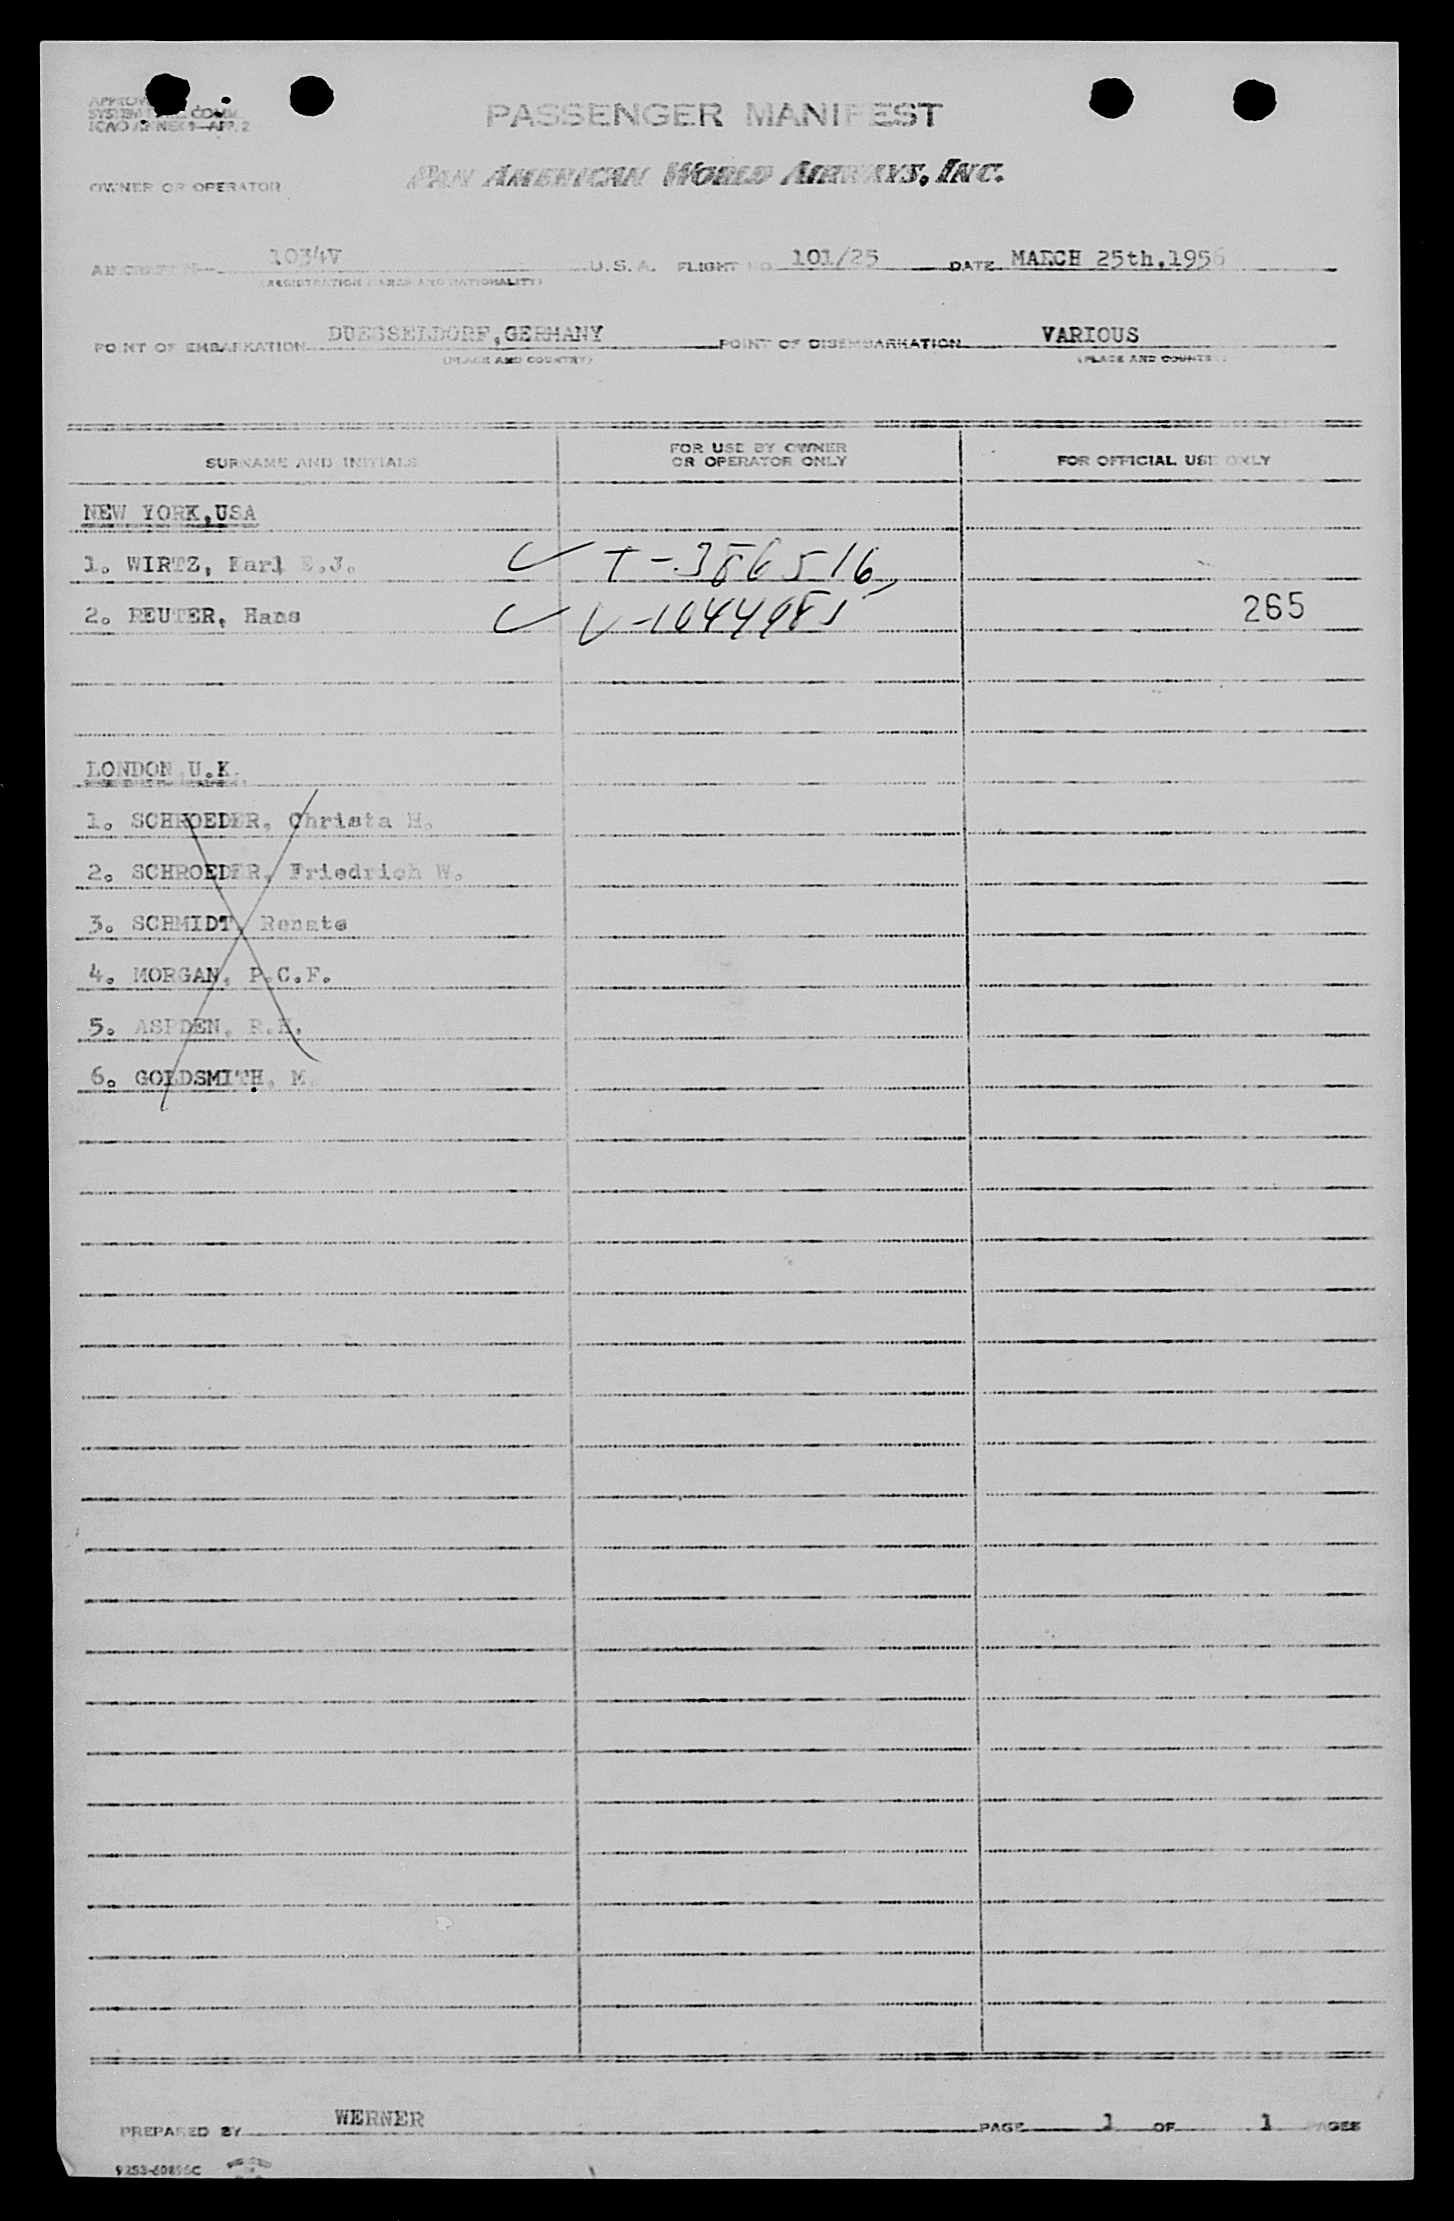 PASSENGER MANIFEST
ICAO ANNEX 9—APP. 2
OWNER OR OPERATOR PAN AMERICAN WORLD AIRWAYS, INC.
AIRCRAFT 1034V U.S.A. FLIGHT NO. 101/25 DATE MARCH 25th,1956
(REGISTRATION MARKS AND NATIONALITY)
POINT OF EMBARKATION DUESSELDORF,GERMANY POINT OF DISEMBARKATION VARIOUS
(PLACE AND COUNTRY) (PLACE AND COUNTRY)
SURNAME AND INITIALS FOR USE BY OWNER OR OPERATOR ONLY FOR OFFICIAL USE ONLY
NEW YORK,USA
1. WIRTZ, Karl E.J. T-386516
2. REUTER, Hans V-1044985 265
LONDON U.K.
1. SCHROEDER, Christa H.
2. SCHROEDER, Friedrich W.
3. SCHMIDT, Renate
4. MORGAN, P.C.F.
5. ASPDEN, R.H.
6. GOLDSMITH, M.
PREPARED BY WERNER PAGE 1 OF 1 PAGES